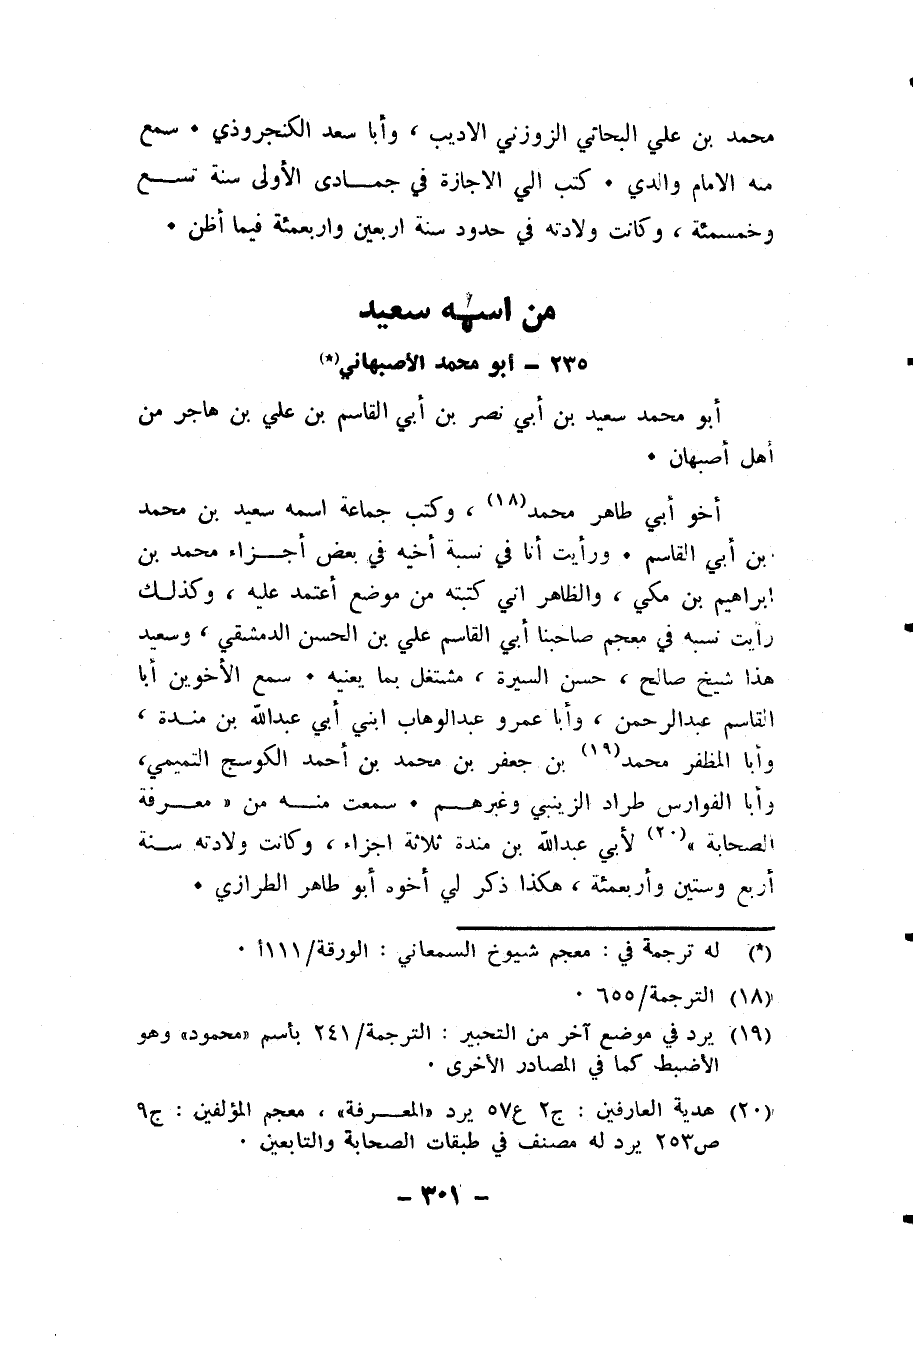 محمد بن علي البحاتي الزوزني الاديب ، وأبا سعد الكنجروذي • سمع
منه الامام والدي • كتب الي الاجازة في جمـــادى الأولى سنة تســـع
وخمسمئة ، وكانت ولادته في حدود سنة اربعين واربعمئة فيما أظن •
من اسمه سعيد
٢٣٥ – أبو محمد الأصبهاني(*)
أبو محمد سعيد بن أبي نصر بن أبي القاسم بن علي بن هاجر من
أهل أصبهان •
أخو أبي طاهر محمد(١٨) ، وكتب جماعة اسمه سعيد بن محمد
بن أبي القاسم • ورأيت أنا في نسبة أخيه في بعض أجـــزاء محمد بن
ابراهيم بن مكي ، والظاهر اني كتبته من موضع أعتمد عليه ، وكذلـك
رأيت نسبه في معجم صاحبنا أبي القاسم علي بن الحسن الدمشقي ، وسعيد
هذا شيخ صالح ، حسن السيرة ، مشتغل بما يعنيه • سمع الأخوين أبا
القاسم عبدالرحمن ، وأبا عمرو عبدالوهاب ابني أبي عبدالله بن منـدة ،
وأبا المظفر محمد(١٩) بن جعفر بن محمد بن أحمد الكوسج التميمي،
وأبا الفوارس طراد الزينبي وغيرهـــم • سمعت منـــه من « معـــرفة
الصحابة »(٢٠) لأبي عبدالله بن مندة ثلاثة اجزاء ، وكانت ولادته سـنة
أربع وستين وأربعمئة ، هكذا ذكر لي أخوه أبو طاهر الطرازي •
(*) له ترجمة في : معجم شيوخ السمعاني : الورقة/١١١أ •
(١٨) الترجمة/٦٥٥ •
(١٩) يرد في موضع آخر من التحبير : الترجمة/٢٤١ بأسم «محمود» وهو
الأضبط كما في المصادر الأخرى •
(٢٠) هدية العارفين : ج٢ ع٥٧ يرد «المعـــرفة» ، معجم المؤلفين : ج٩
ص٢٥٣ يرد له مصنف في طبقات الصحابة والتابعين •
– ٣٠١ –